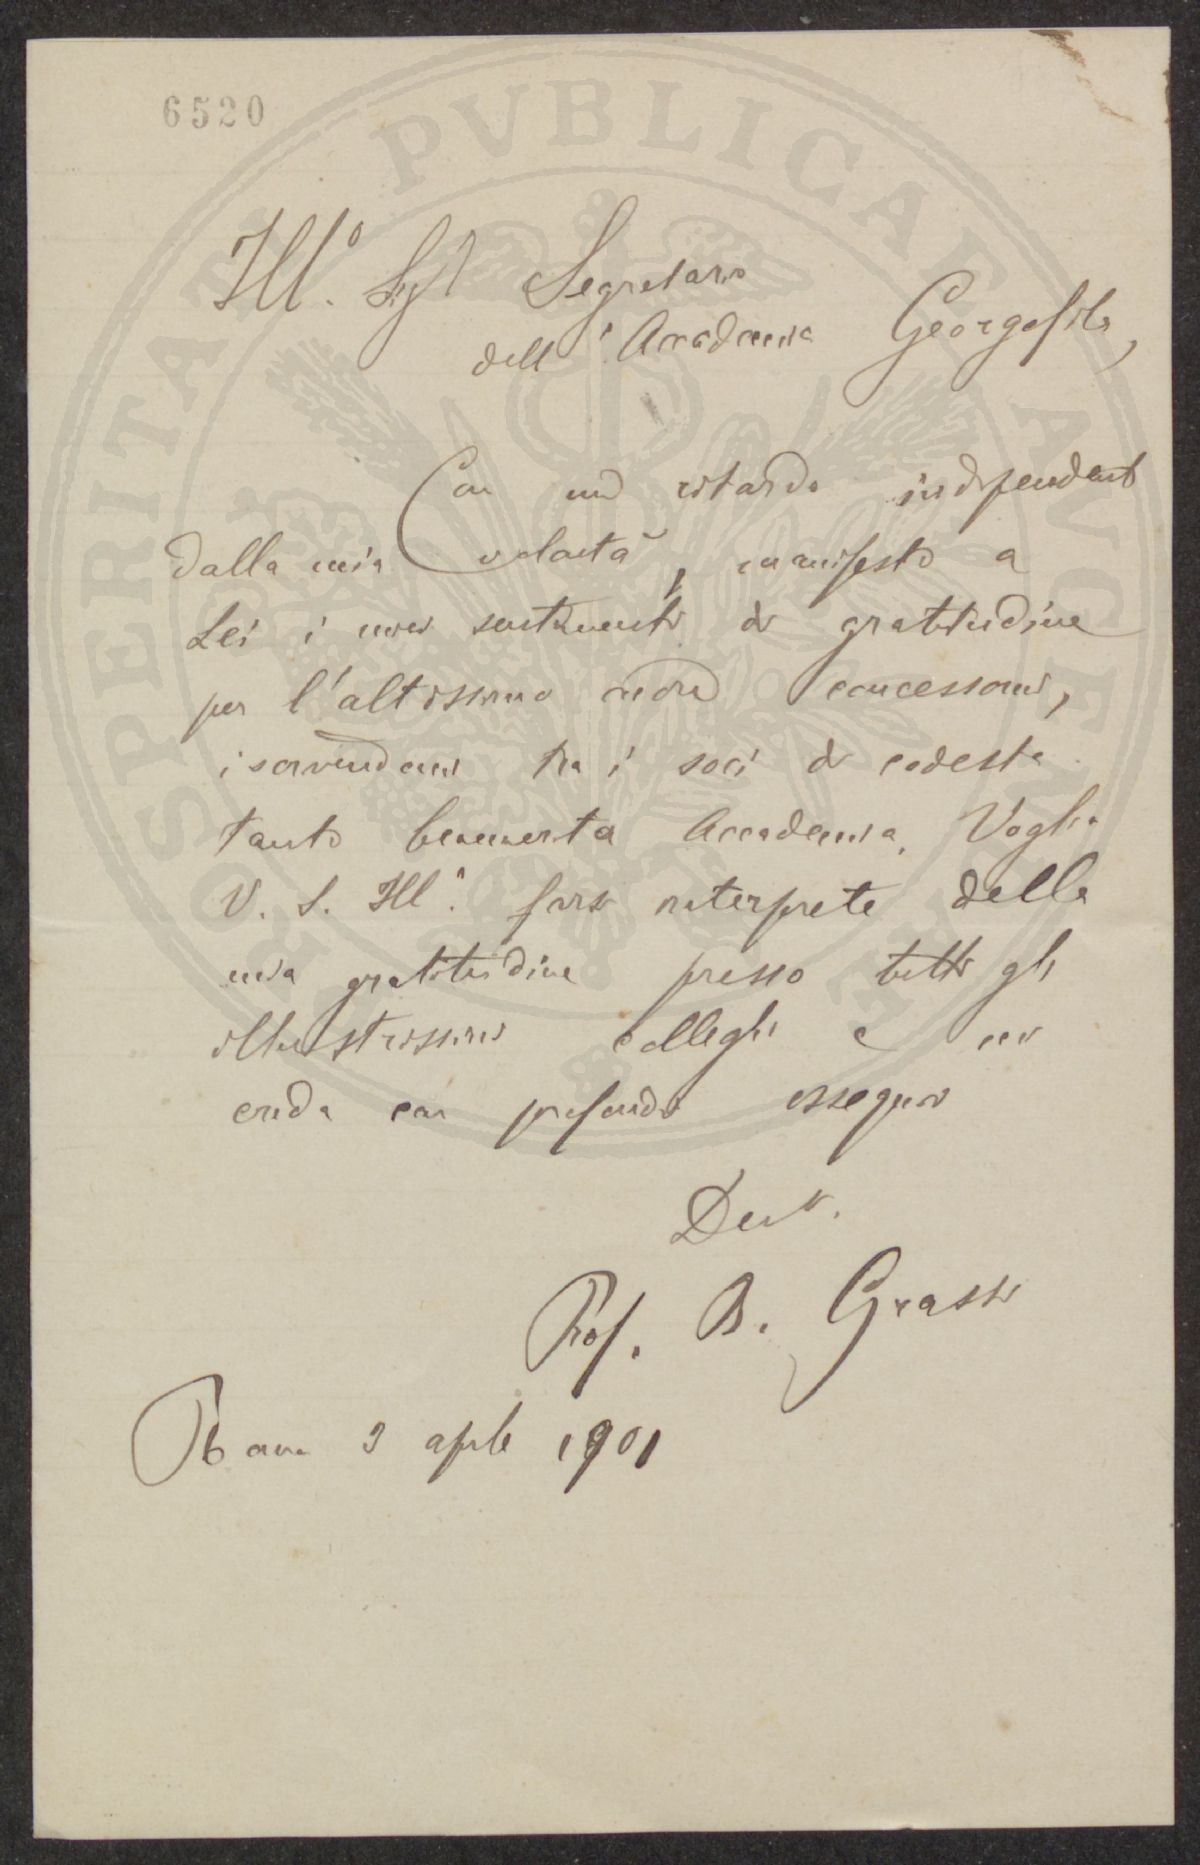 6520
PROSPERITATI PVBLICAE AVGENDAE
Ill.º Sig.r Segretario
dell'Accademia Georgofili,
Con un ritardo indipendente
dalla mia volontà, manifesto a
Lei i miei sentimenti di gratitudine
per l'altissimo onore concessomi,
iscrivendomi tra i soci di codesta
tanto benemerita Accademia. Voglia
V. S. Ill.ª farsi interprete della
mia gratitudine presso tutti gli
illustrissimi colleghi e mi
creda con profondo ossequio
Dev.
Prof. B. Grassi
Roma 3 aprile 1901